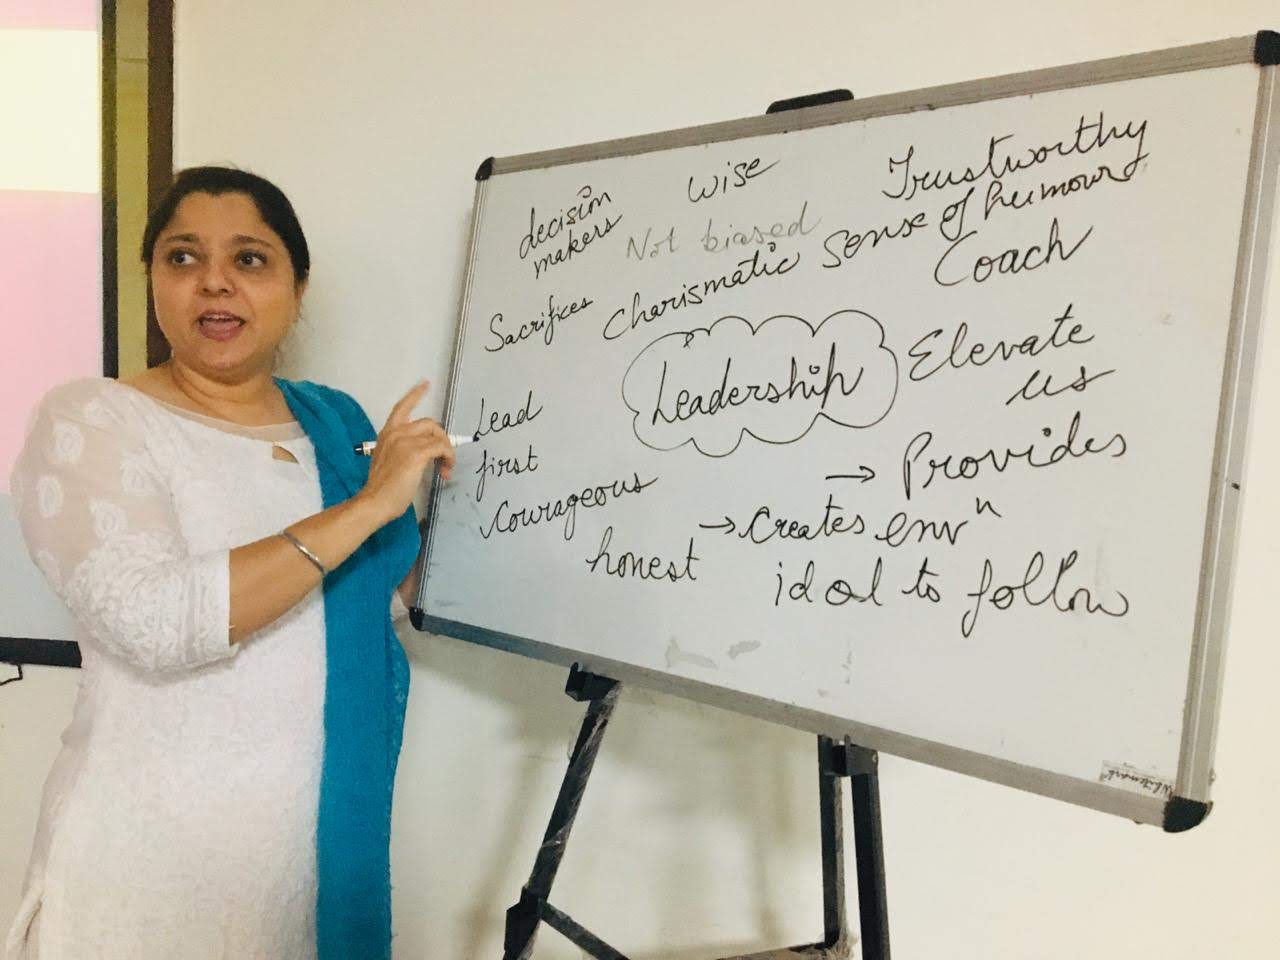 decision
makers
wise
Trustworthy
Not biased
sense of humour
Sacrifices
charismatic
Coach
Leadership
Elevate
us
Lead
first
→ Provides
Courageous
→ creates envⁿ
honest
idol to follow
Whitemark